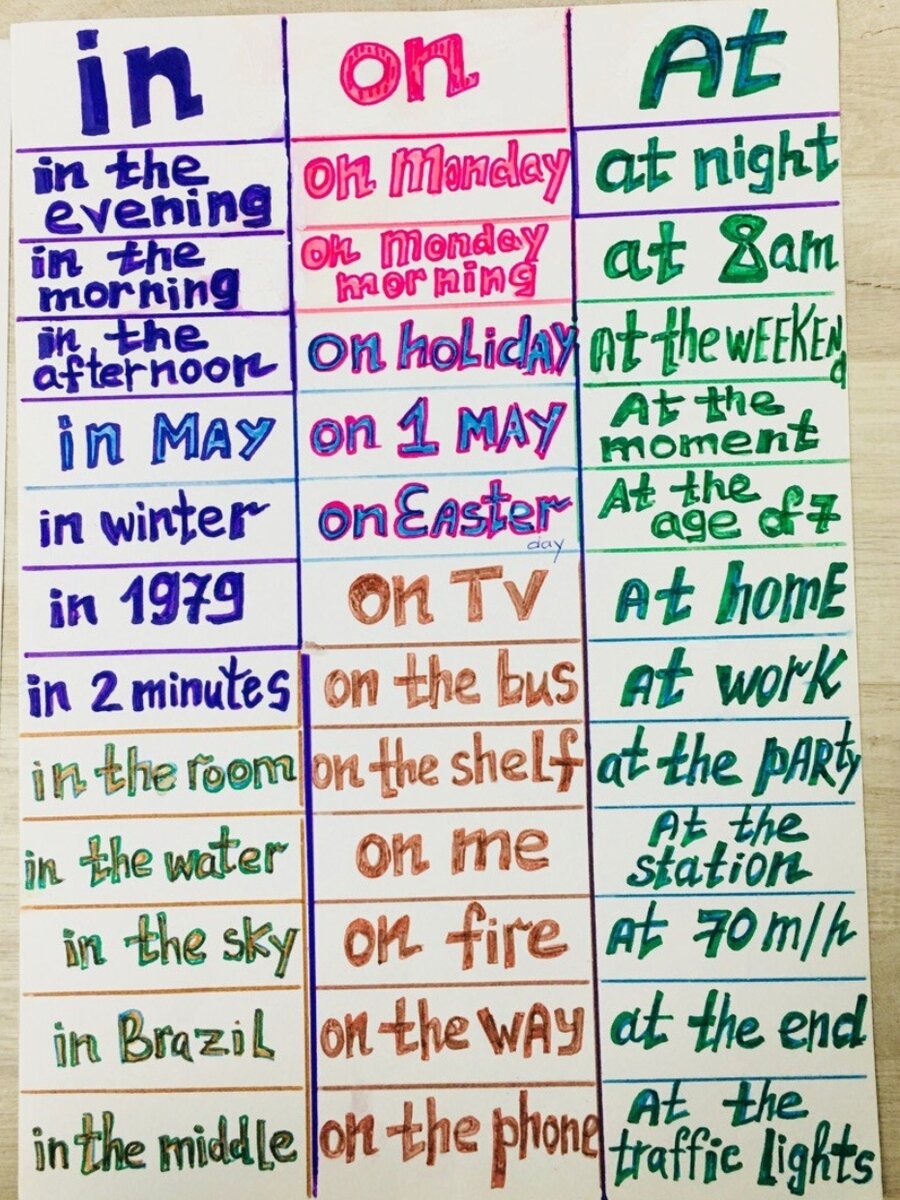 in
on
At
in the
evening
on Monday
at night
in the
morning
on Monday
morning
at 8am
in the
afternoon
on holidAy
At the WEEKENd
in MAY
on 1 MAY
At the
moment
in winter
on EAster
day
At the
age of 7
in 1979
on Tv
At homE
in 2 minutes
on the bus
At work
in the room
on the shelf
at the pARty
in the water
on me
At the
station
in the sky
on fire
At 70 m/h
in BraziL
on the WAY
at the end
in the middle
on the phone
At the
traffic lights